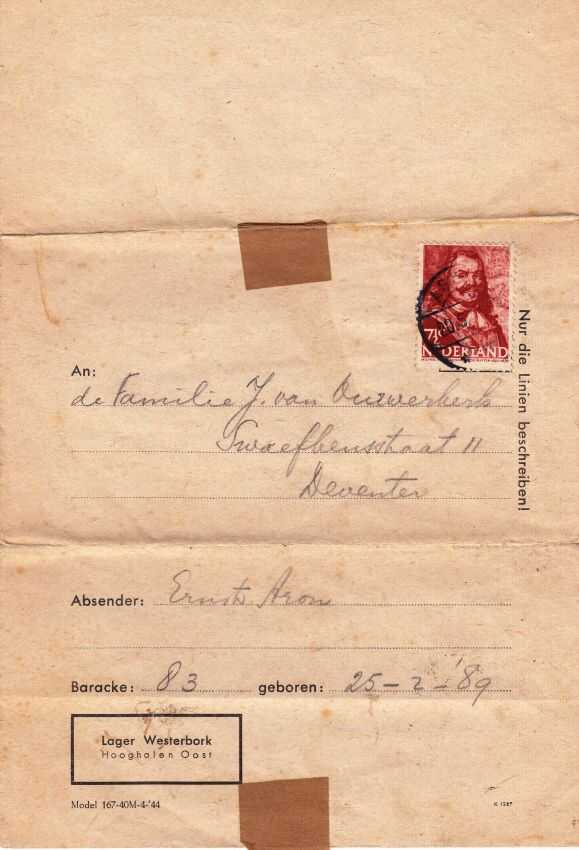 7½
NEDERLAND
Nur die Linien beschreiben!
An:
de Familie J. van Ouwerkerk
11
Deventer
Absender: Ernst Aron
Baracke: 83 geboren: 25-2-'89
Lager Westerbork
Hooghalen Oost
Model 167-40M-4-'44
K 1527